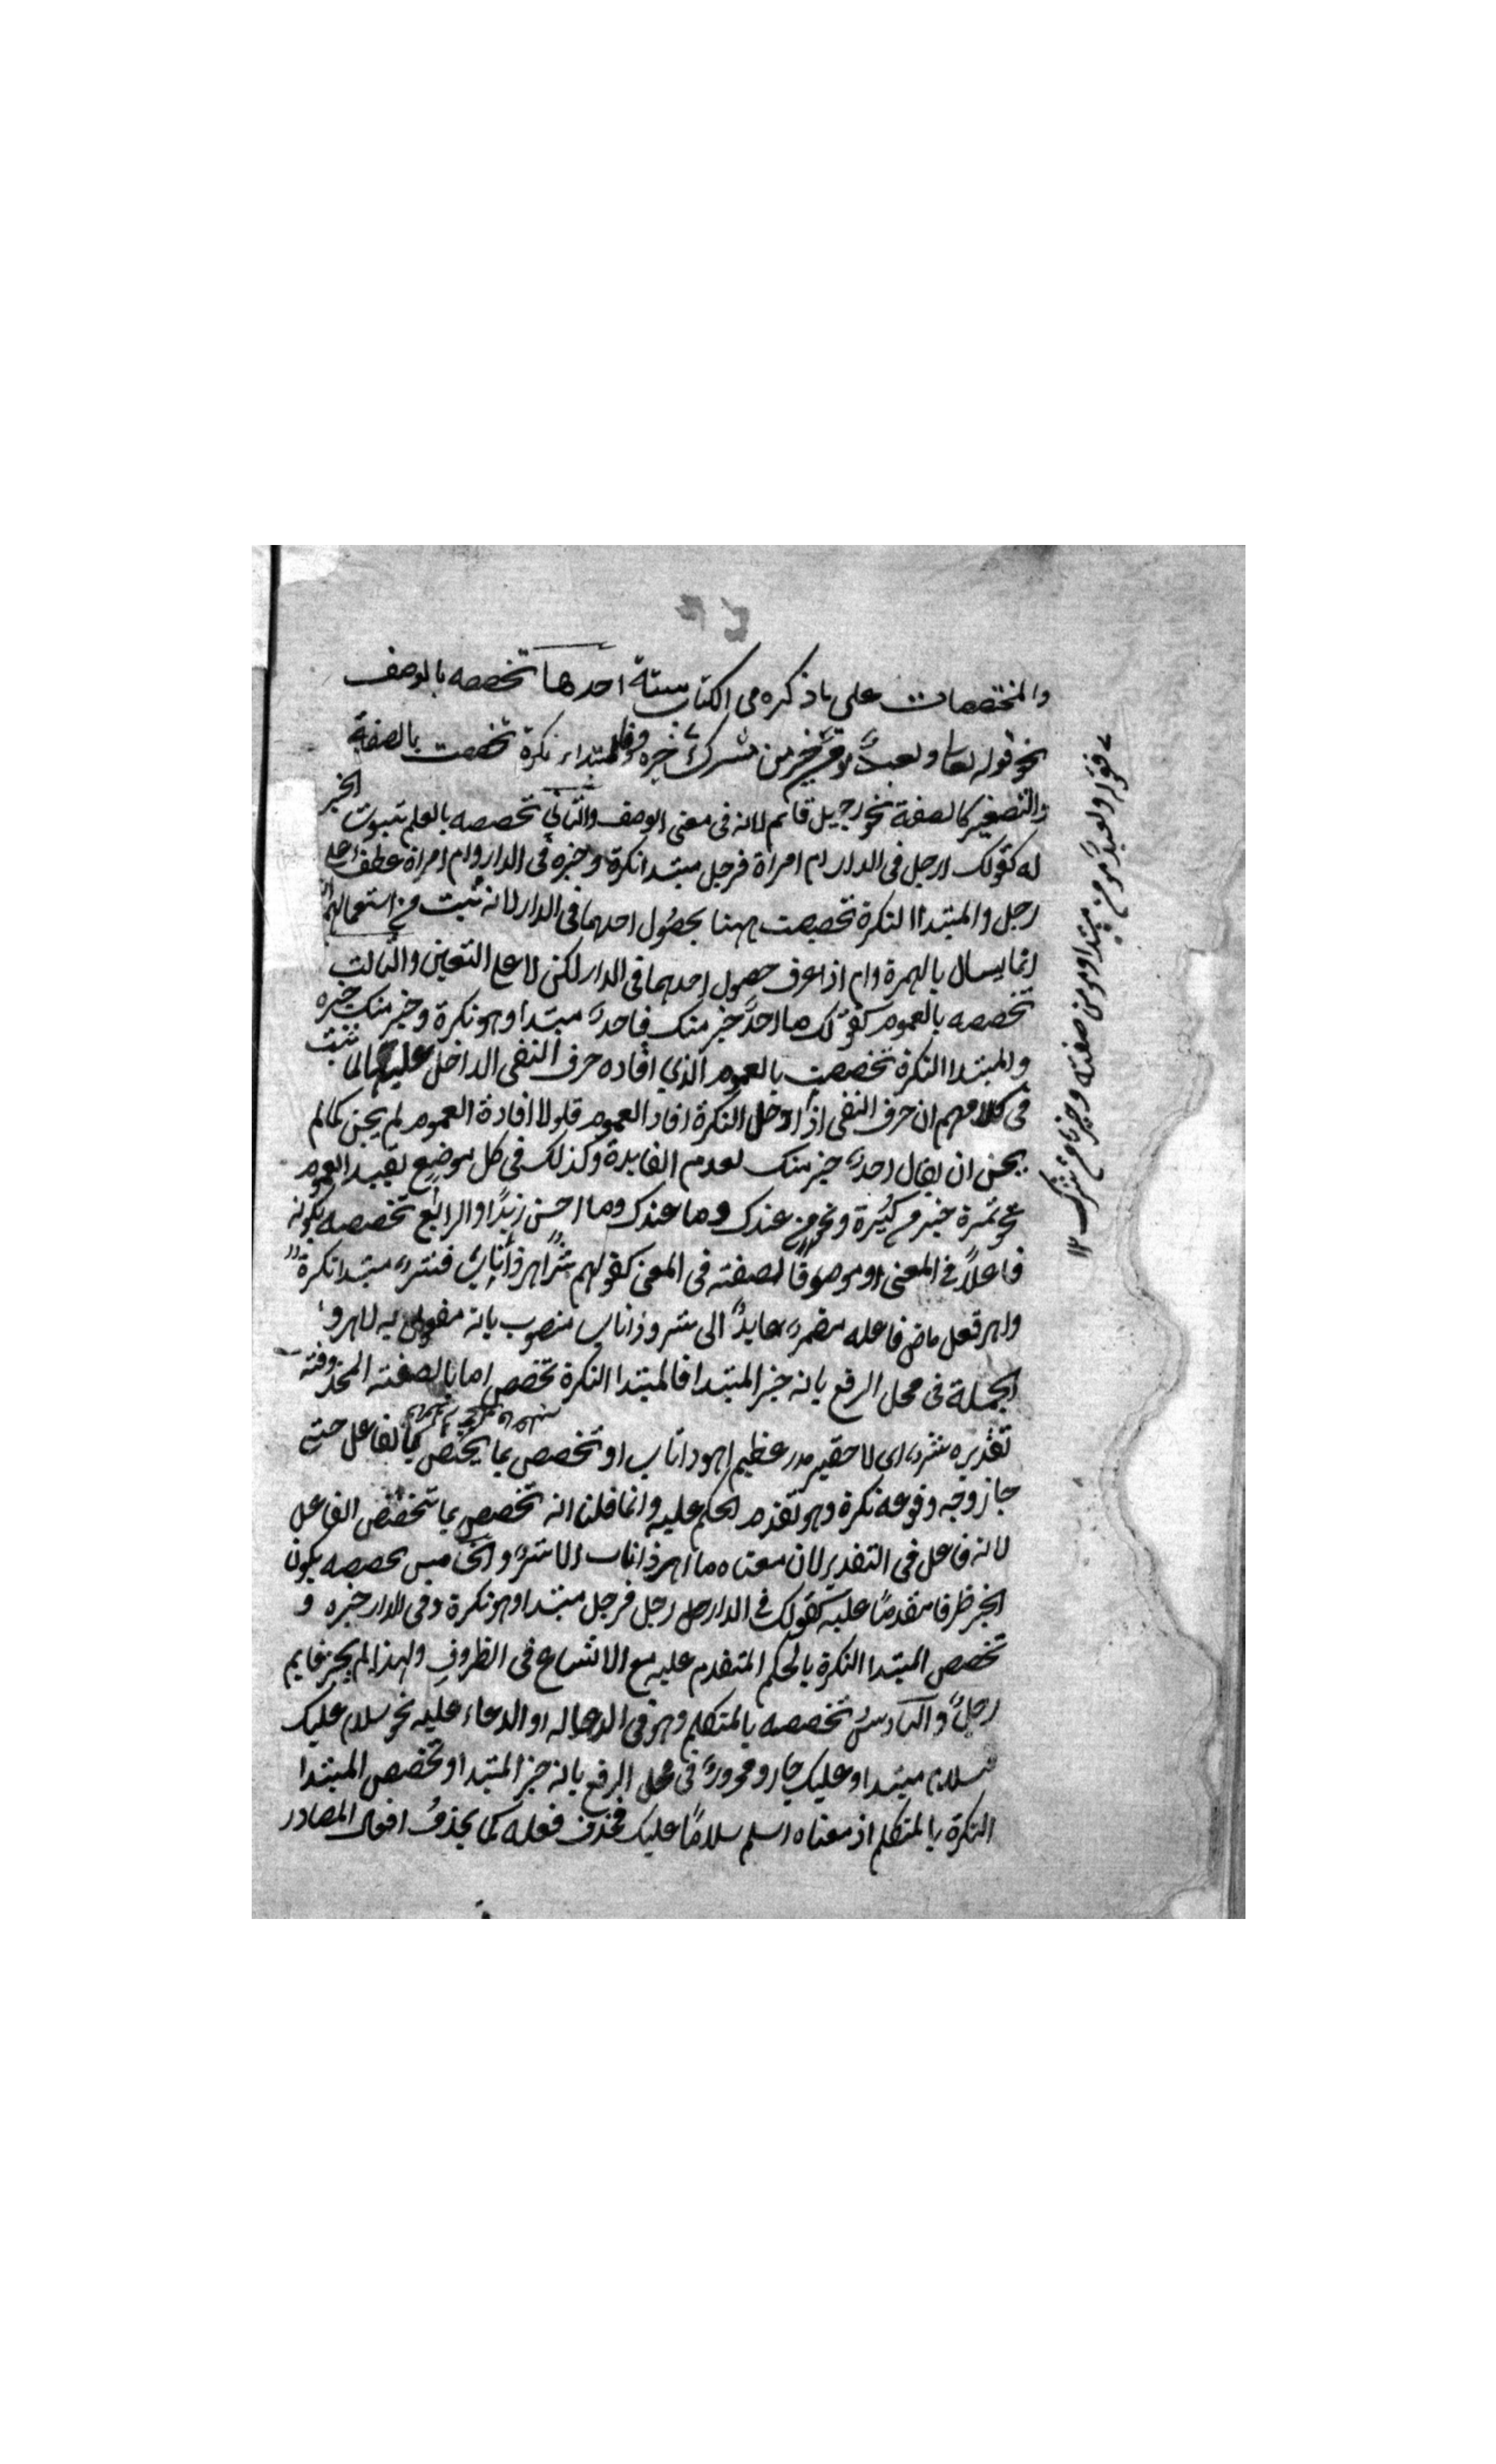 والمخصصات على ما ذكره فى الكتاب ستة احدها تخصصه بالوصف
نحو قوله تعا ولعبد مؤمن خير من مشرك خيره مبتداء نكرة تخصصت بالصفة
والتصغير كالصفة نحو رجيل قائم لانه فى معنى الوصف والثانى تخصصه بالعلم بثبوت الخبر
له كقولك ارجل فى الدار ام امراة فرجل مبتدا نكرة وخبره فى الدار وام امراة عطف على
رجل والمبتدا النكرة تخصصت بهنا بحصول احدهما فى الدار لانه ثبت من استعمالهم
انما يسال بالهمزة وام اذا عرف حصول احدهما فى الدار لكن لا على التعيين والثالث
تخصصه بالعموم كقولك ما احد خير منك فاحد مبتدا وهو نكرة وخير منك خبره
والمبتدا النكرة تخصصت بالعموم الذي افاده حرف النفى الداخل عليها لما ثبت
فى كلامهم ان حرف النفى اذا دخل النكرة افاد العموم فلولا افادة العموم لم يحسن كما لم
يحسن ان يقال احد خير منك لعدم الفايدة وكذلك فى كل موضع يفيد العموم
نحو تمرة خير من كثيرة ونحو من عندك وما عندك وما احسن زيدا والرابع تخصصه بكونه
فاعلا فى المعنى او موصوفا لصفته فى المعنى كقولهم شر اهر ذا ناب فشر مبتدا نكرة
واهر فعل ماض فاعله مضمر عايد الى شر وذا ناب منصوب بانه مفعول به لاهر و
الجملة فى محل الرفع بانه خبر المبتدا فالمبتدا النكرة تخصص اما بالصفته المحذوفته
تقديره شر اى لا حقير بل عظيم اهر ذا ناب او تخصص بما يختص به الفاعل حتى
جاز وجه وقوعه نكرة وهو تقدم الحكم عليه وانما قلنا انه تخصص بما تخصص الفاعل
لانه فاعل فى التقدير لان معناه ما اهر ذا ناب الا شر والخامس تخصصه بكون
الخبر ظرفا مقدما عليه كقولك فى الدار رجل فرجل مبتدا وهو نكرة وفى الدار خبره و
تخصص المبتدا النكرة بالحكم المتقدم عليه مع الاتساع فى الظروف ولهذا لم يجز قايم
رجل والسادس تخصصه بالمتكلم وهو فى الدعا له او الدعاء عليه نحو سلام عليك
فسلام مبتدا وعليك جار ومجرور فى محل الرفع بانه خبر المبتدا وتخصص المبتدا
النكرة بالمتكلم اذ معناه اسلم سلاما عليك فحذف فعله كما يحذف افعال المصادر
فقوله ولعبد مؤمن مبتدا ومؤمن صفته وخير من مشرك ١٢